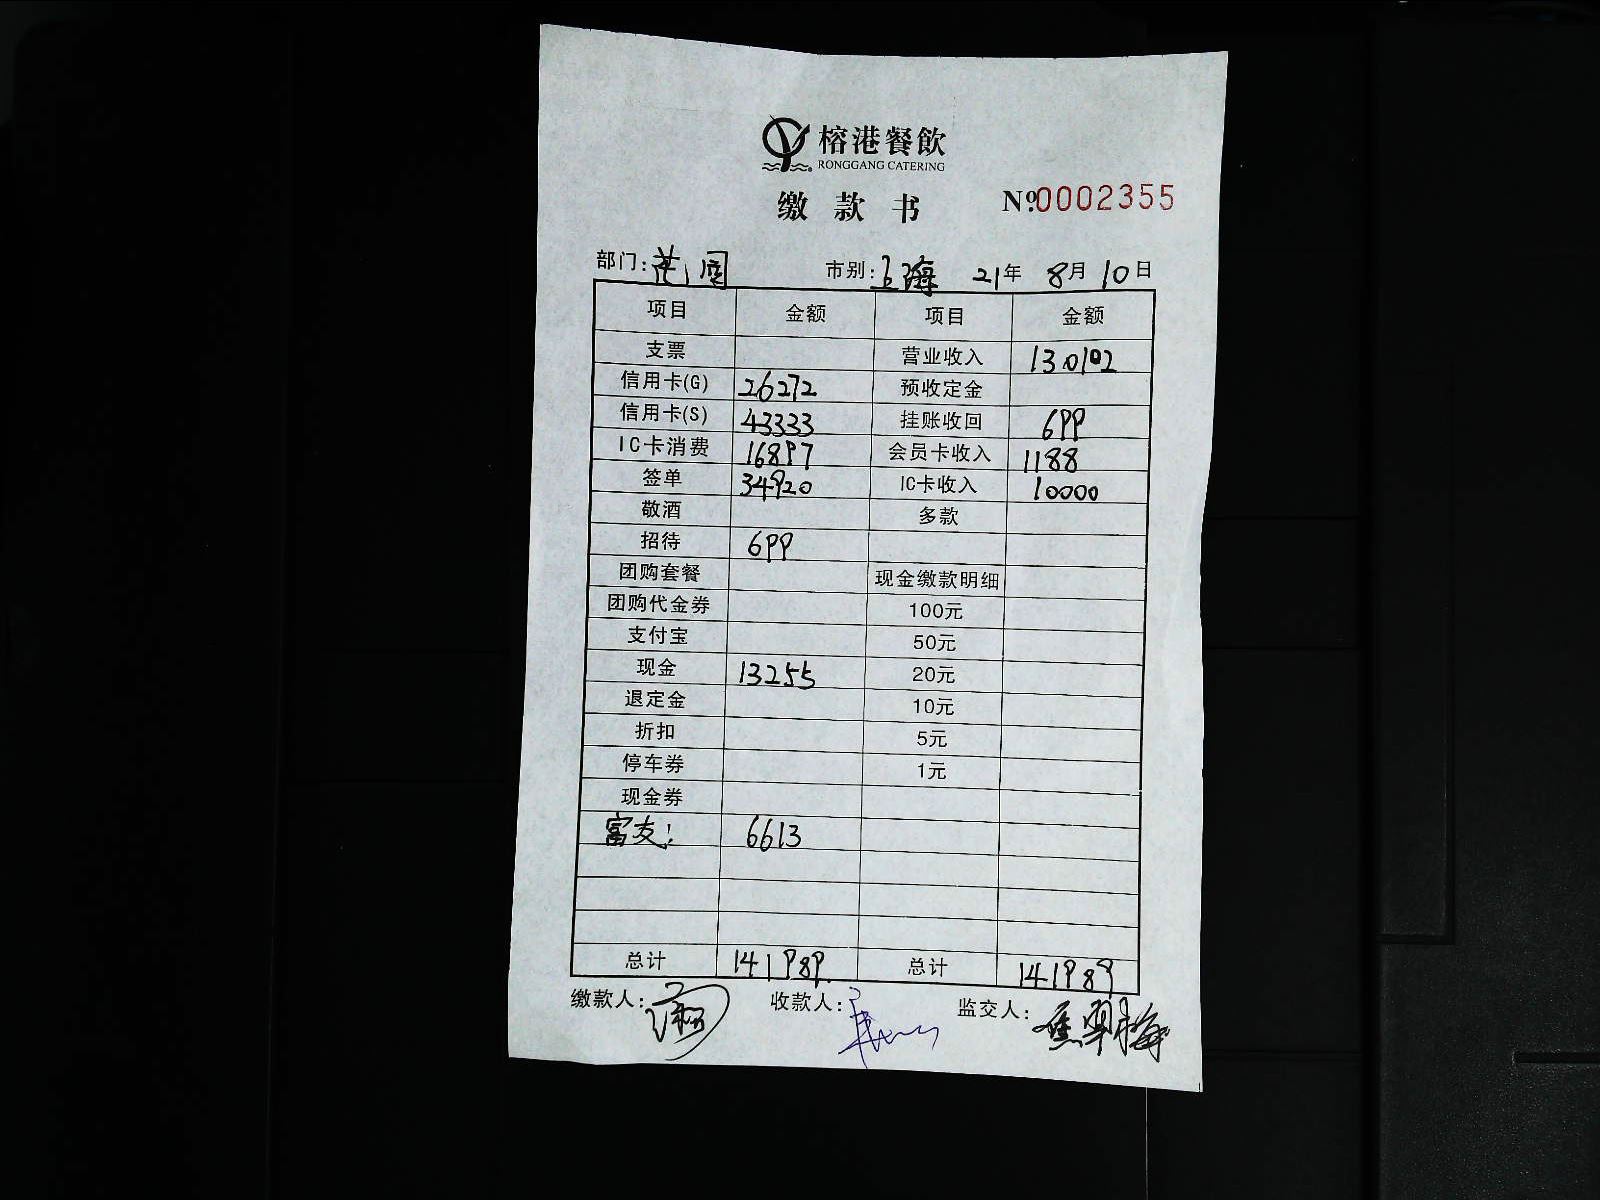 榕港餐飲
RONGGANG CATERING
缴款书 №0002355
部门: 市别:上海 21年 8月 10日
项目 金额 项目 金额
支票 营业收入 130102
信用卡(G) 26272 预收定金
信用卡(S) 43333 挂账收回 699
IC卡消费 16897 会员卡收入 1188
签单 34920 IC卡收入 10000
敬酒 多款
招待 699
团购套餐 现金缴款明细
团购代金券 100元
支付宝 50元
现金 13255 20元
退定金 10元
折扣 5元
停车券 1元
现金券
富友: 6613
总计 141989 总计 141989
缴款人: 收款人: 监交人: